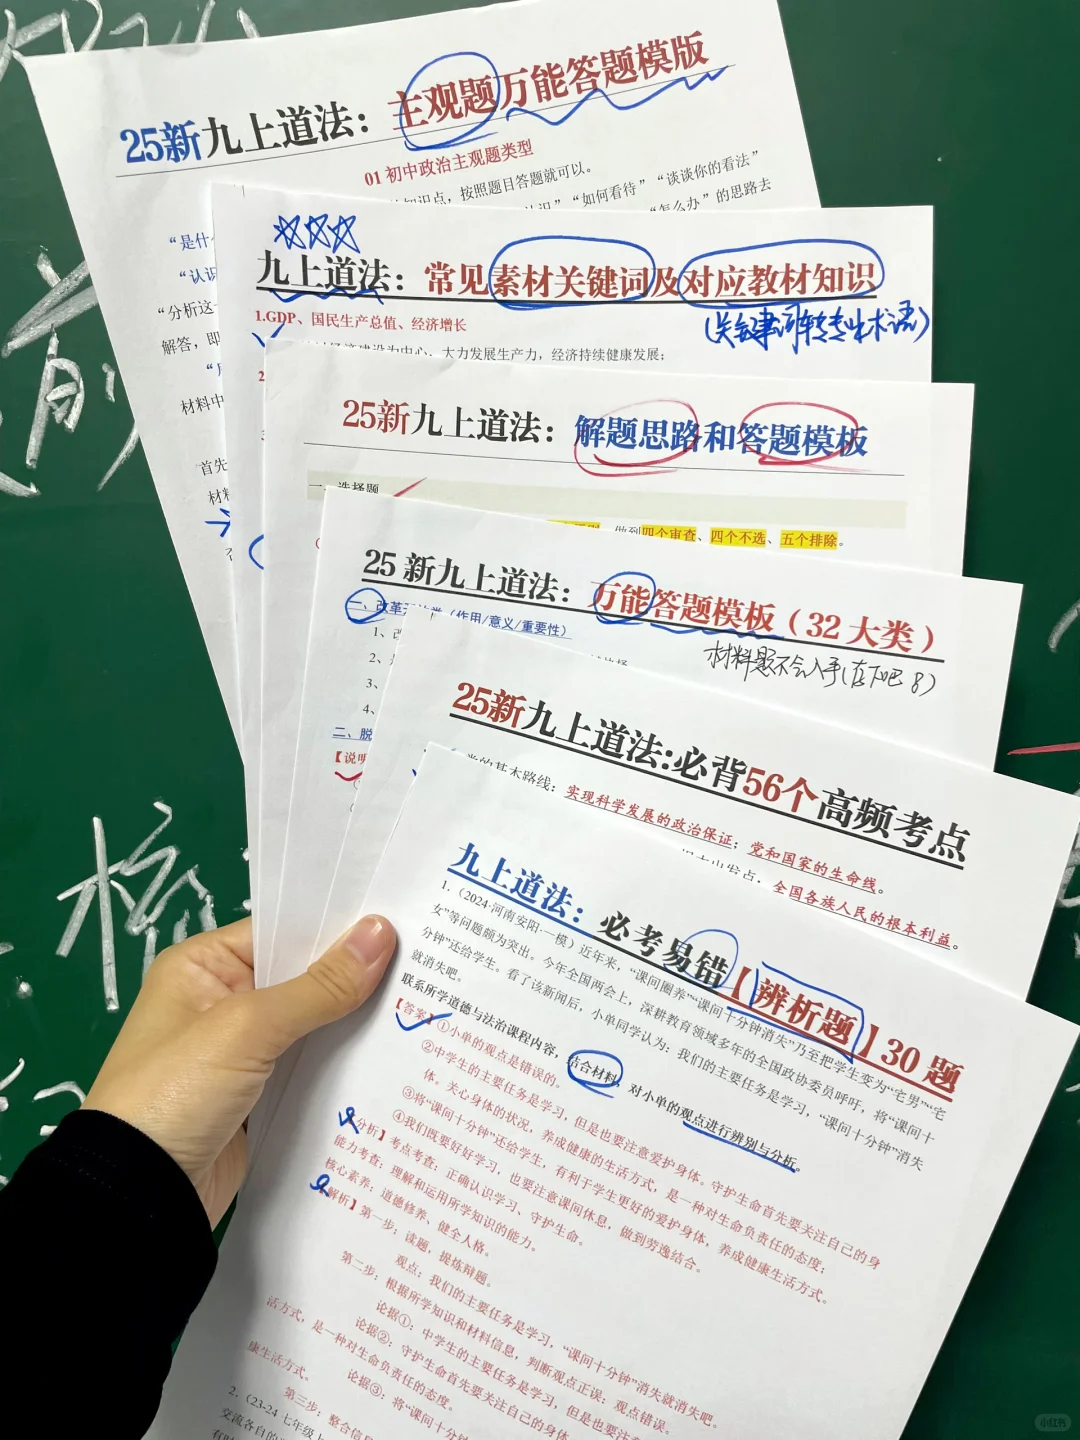 25新九上道法：主观题万能答题模版
01 初中政治主观题类型
知识点，按照题目答题就可以。
“如何看待” “谈谈你的看法”
“怎么办”的思路去
“是什
“认识
“分析这
解答，即
材料中
首先
材料
九上道法：常见素材关键词及对应教材知识
(关键词转专业术语)
1.GDP、国民生产总值、经济增长
经济建设为中心，大力发展生产力，经济持续健康发展；
2
25新九上道法：解题思路和答题模板
一、选择题
做到四个审查、四个不选、五个排除。
25 新九上道法：万能答题模板（32 大类）
材料题不会入手(在下吧
一、改革开放类（作用/意义/重要性）
1、改
2、
3、
4、
二、脱
【说明
25新九上道法:必背56个高频考点
党的基本路线：实现科学发展的政治保证；党和国家的生命线。
根本出发点：全国各族人民的根本利益。
九上道法：必考易错【辨析题】30 题
1.（2024·河南安阳·一模）近年来，“课间圈养”“课间十分钟消失”乃至把学生变为“宅男”“宅
女”等问题颇为突出。今年全国两会上，深耕教育领域多年的全国政协委员呼吁，将“课间十
分钟”还给学生。看了该新闻后，小单同学认为：我们的主要任务是学习，“课间十分钟”消失
就消失吧。
联系所学道德与法治课程内容，结合材料，对小单的观点进行辨别与分析。
【答案】①小单的观点是错误的。
②中学生的主要任务是学习，但是也要注意爱护身体。守护生命首先要关注自己的身
体。关心身体的状况，养成健康的生活方式，是一种对生命负责任的态度；
③将“课间十分钟”还给学生，有利于学生更好的爱护身体，养成健康生活方式。
④我们既要好好学习，也要注意课间休息，做到劳逸结合。
分析】考点考查：正确认识学习、守护生命。
能力考查：理解和运用所学知识的能力。
核心素养：道德修养、健全人格。
解析】第一步：读题，提炼辩题。
观点：我们的主要任务是学习，“课间十分钟”消失就消失吧。
第二步：根据所学知识和材料信息，判断观点正误：观点错误。
论据①：中学生的主要任务是学习，但是也要注意
论据②：守护生命首先要关注自己的身体
活方式，是一种对生命负责任的态度。
论据③：将“课间十分钟
康生活方式。
第三步：整合信息
2.（23-24 七年级上
交流各自的
有时